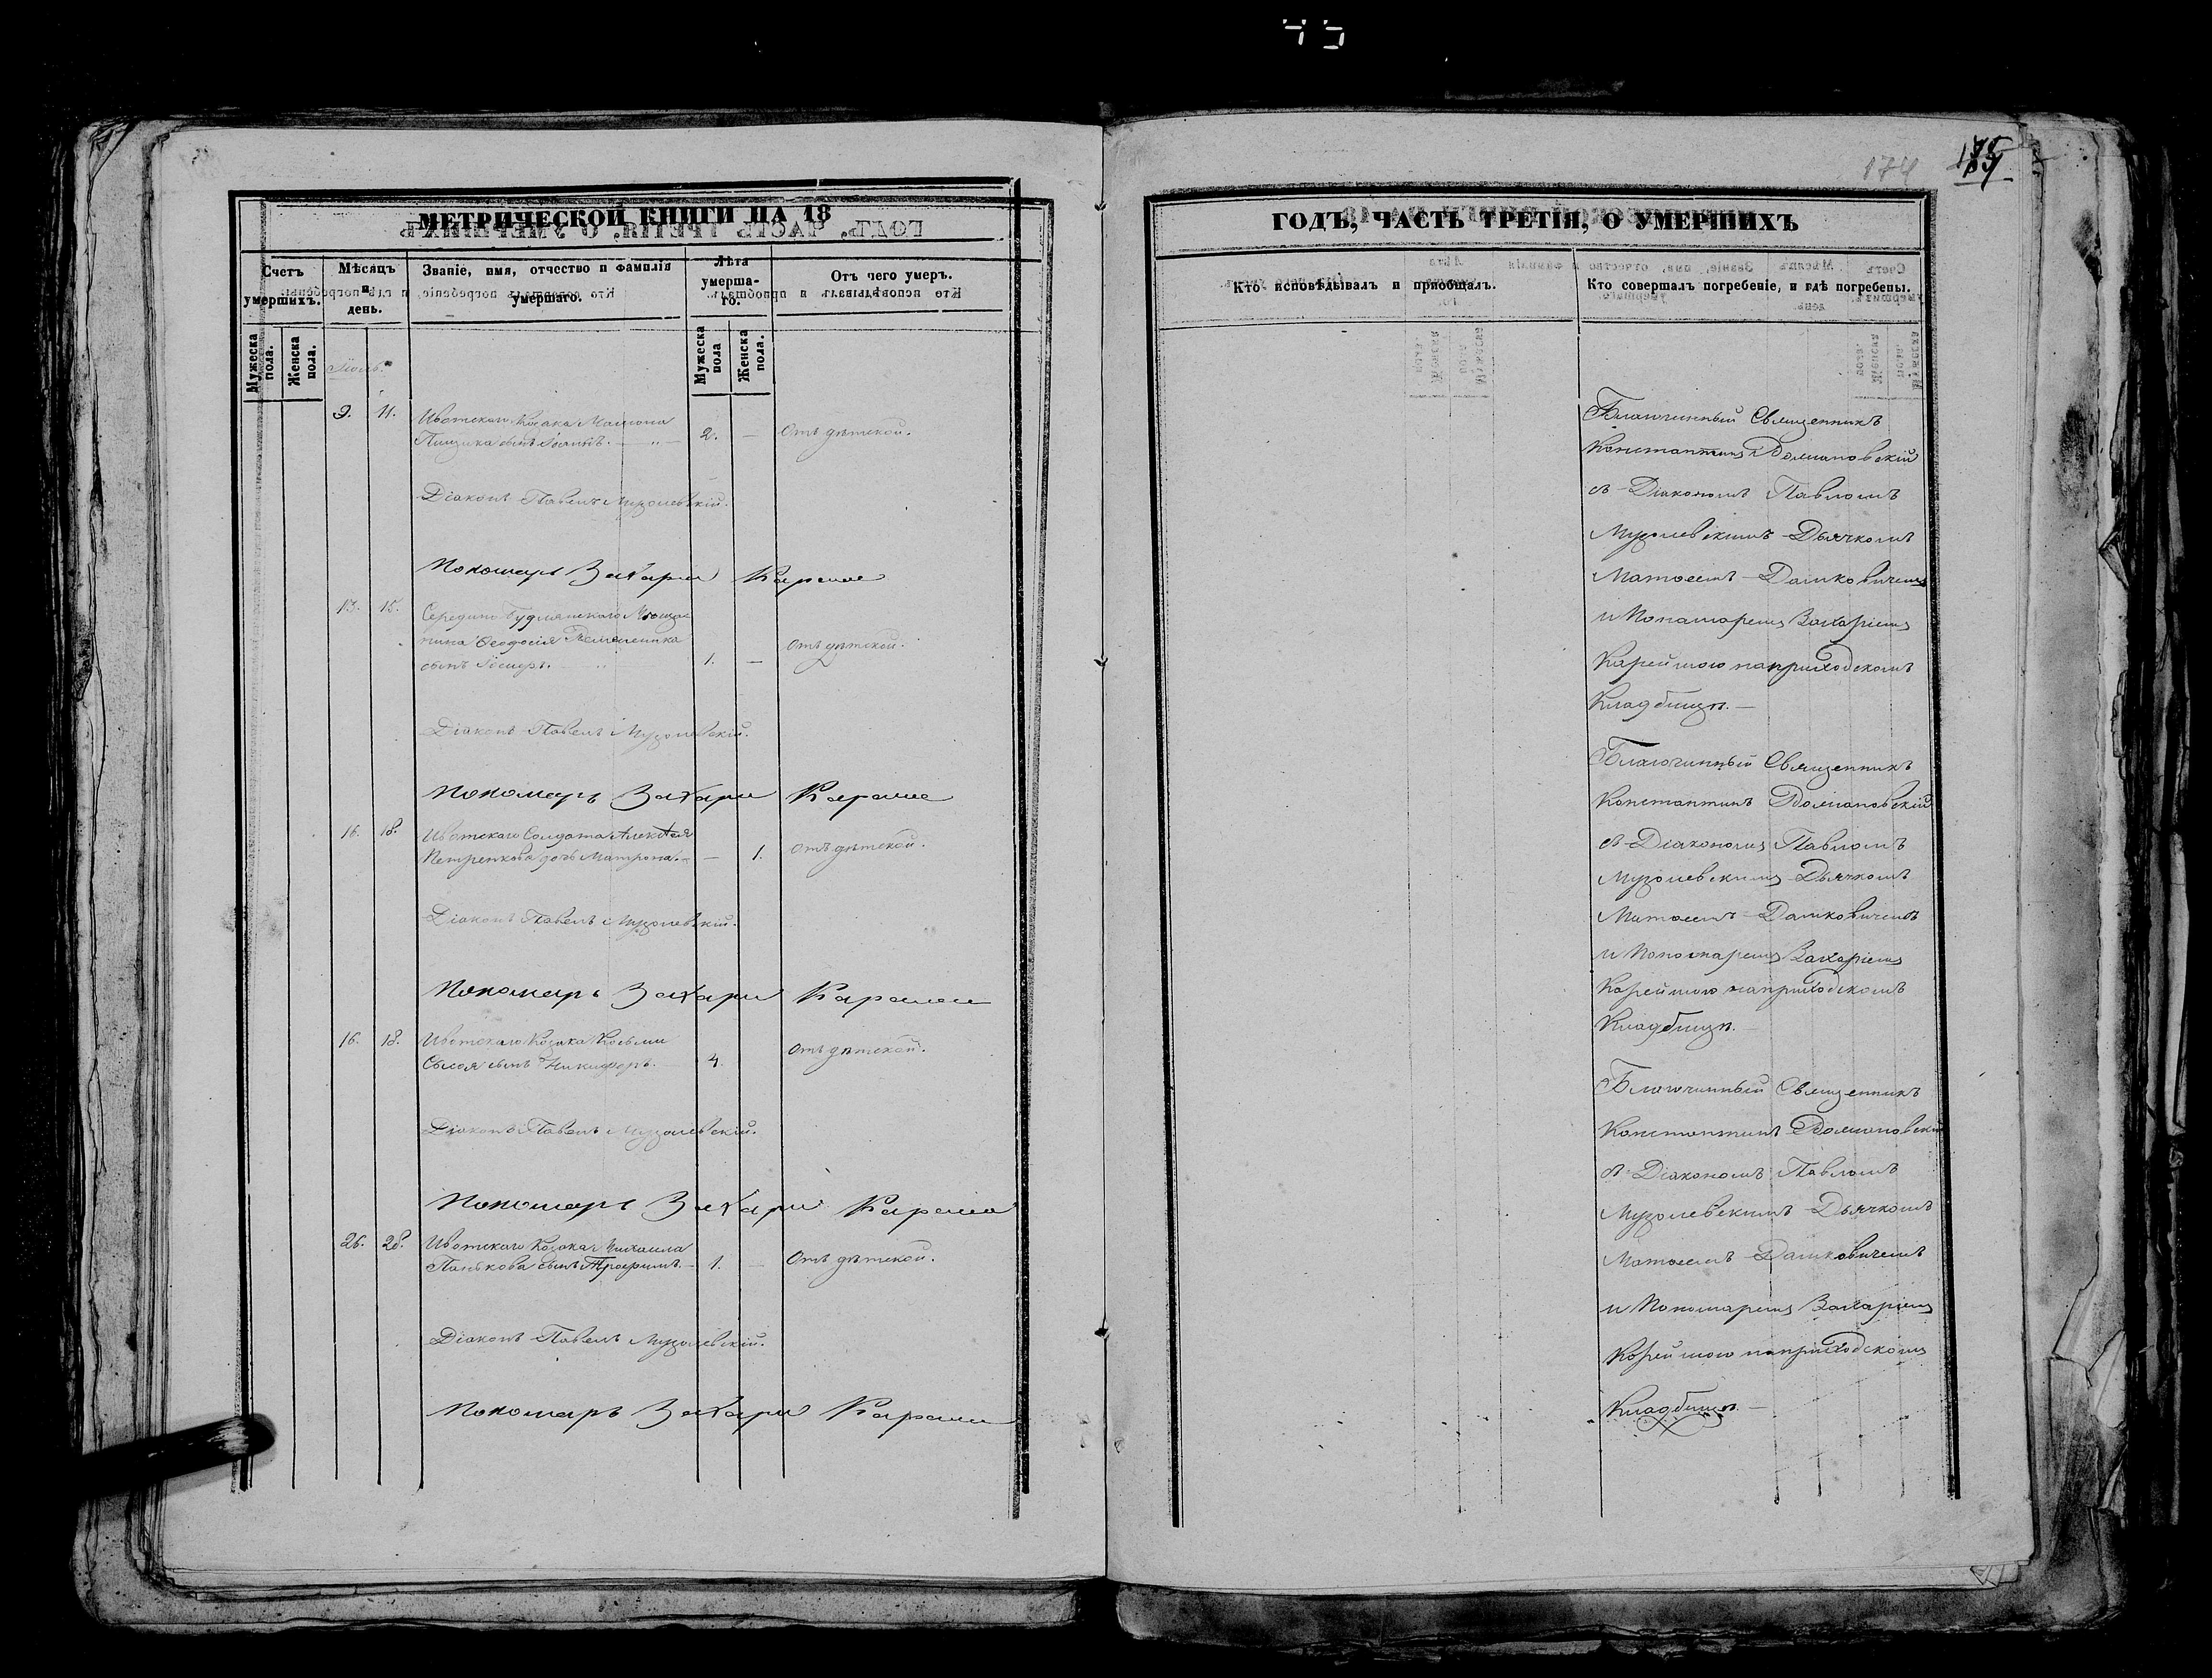 174
МЕТРИЧЕСКОЙ КНИГИ НА 18
Счетъ умершихъ.
Мужеска пола.
Женска пола.
Мѣсяцъ и день.
Званіе, имя, отчество и фамилія умершаго.
Лѣта умершаго.
Мужеска пола
Женска пола.
Отъ чего умеръ.
Іюль.
9. 11. Ивотскаго Козака Мамона
Пищика сынъ Іоаннъ. 2. — Отъ дѣтской.
Діаконъ Павелъ Музолевскій.
Пономарь Захарій
13. 15. Середино Будлянскаго Мѣща-
нина Ѳеодосія
сынъ Іосифъ. 1. — Отъ дѣтской.
Діаконъ Павелъ Музолевскій.
Пономарь Захарій
16. 18. Ивотскаго Солдата Алексѣя
Петренкова дочь Матрона. — 1. Отъ дѣтской.
Діаконъ Павелъ Музолевскій.
Пономарь Захарій
16. 18. Ивотскаго Козака Косьмы
сынъ Никифоръ. 4. Отъ дѣтской.
Діаконъ Павелъ Музолевскій.
Пономарь Захарій
26. 28. Ивотскаго Козака Михаила
Панькова сынъ Трофимъ. 1. — Отъ дѣтской.
Діаконъ Павелъ Музолевскій.
Пономарь Захарій
ГОДЪ, ЧАСТЬ ТРЕТІЯ, О УМЕРШИХЪ
Кто исповѣдывалъ и пріобщалъ.
Кто совершалъ погребеніе, и гдѣ погребены.
Благочинный Священникъ
Константинъ Долиановскій
съ Діакономъ Павломъ
Музолевскимъ Дьячкомъ
Матѳеемъ Дашковичемъ
и Пономаремъ Захаріемъ
Карейшою на приходскомъ
Кладбищѣ. —
Благочинный Священникъ
Константинъ Долиановскій
съ Діакономъ Павломъ
Музолевскимъ Дьячкомъ
Матѳеемъ Дашковичемъ
и Пономаремъ Захаріемъ
Карейшою на приходскомъ
Кладбищѣ. —
Благочинный Священникъ
Константинъ Долиановскій
съ Діакономъ Павломъ
Музолевскимъ Дьячкомъ
Матѳеемъ Дашковичемъ
и Пономаремъ Захаріемъ
Карейшою на приходскомъ
Кладбищѣ. —